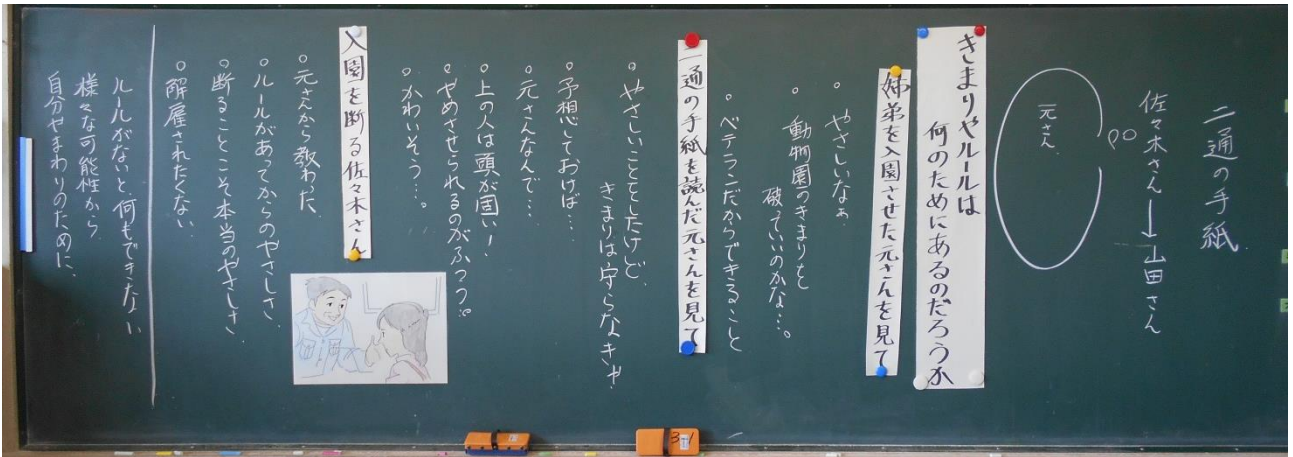 二通の手紙
佐々木さん→山田さん
元さん
きまりやルールは
何のためにあるのだろうか
姉弟を入園させた元さんを見て
。やさしいなぁ
。動物園のきまりを
破っていいのかな…。
。ベテランだからできること
二通の手紙を読んだ元さんを見て
。やさしいことでしたけど、
きまりは守らなきゃ!
。予想しておけば…
。元さんなんで…
。上の人は頭が固い!
。やめさせられるのがふつう…。
。かわいそう…。
入園を断る佐々木さん
。元さんから教わった、
。ルールがあってからのやさしさ、
。断ることこそ本当のやさしさ、
。解雇されたくない、
ルールがないと、何もできない
様々な可能性から
自分やまわりのために、
3-1